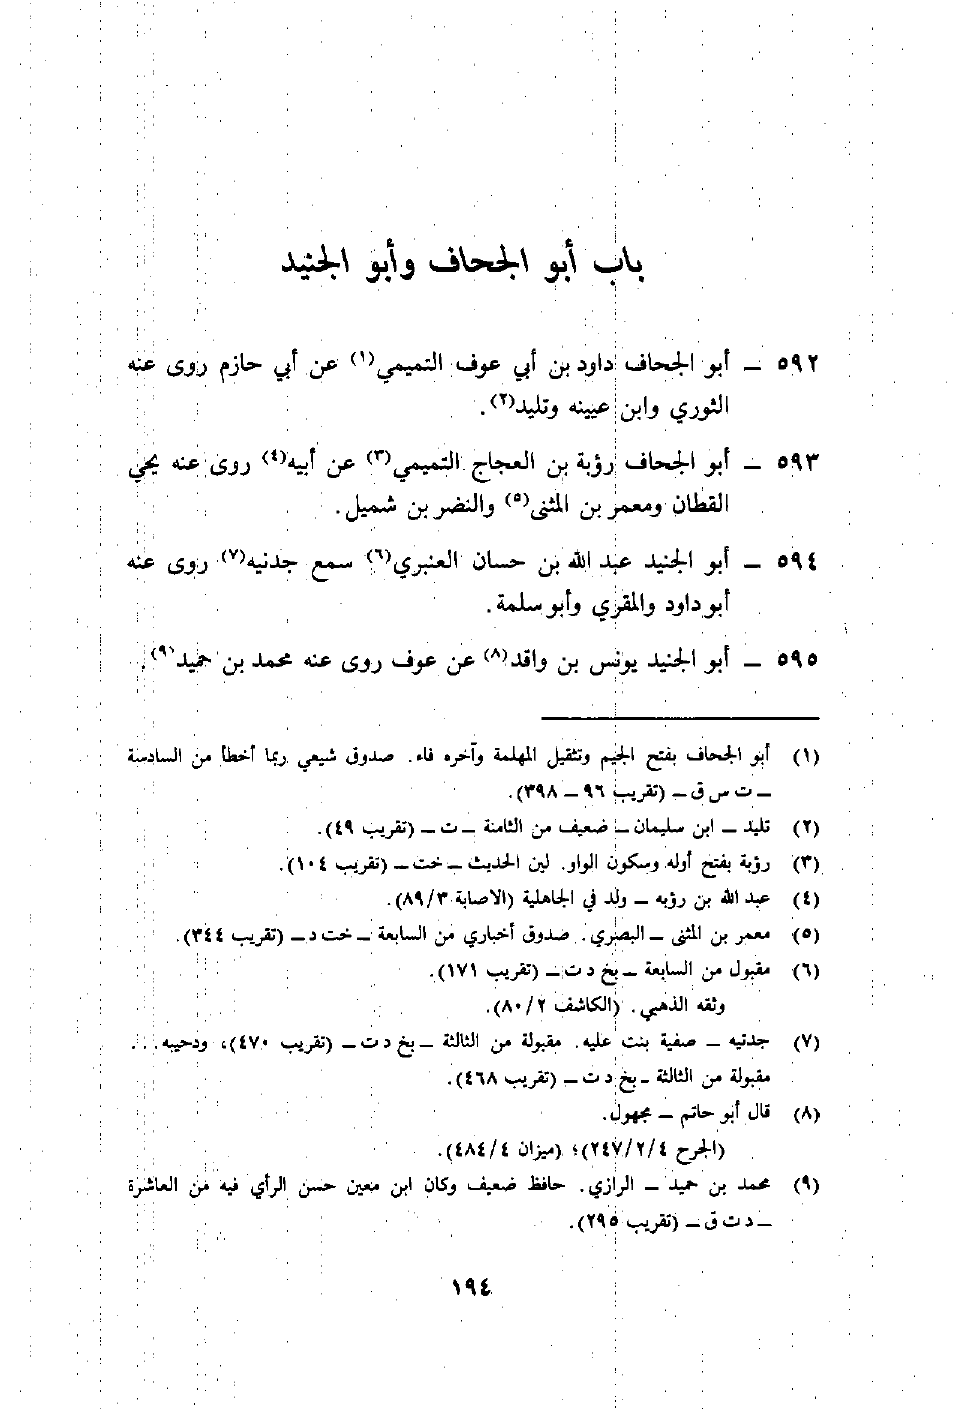 باب أبو الجحاف وأبو الجنيد
٥٩٢ – أبو الجحاف داود بن أبي عوف التميمي(١) عن أبي حازم روى عنه
الثوري وابن عيينه وتليد(٢).
٥٩٣ – أبو الجحاف رؤبة بن العجاج التميمي(٣) عن أبيه(٤) روى عنه يحيي
القطان ومعمر بن المثنى(٥) والنضر بن شميل.
٥٩٤ – أبو الجنيد عبد الله بن حسان العنبري(٦) سمع جدتيه(٧) روى عنه
أبو داود والمقري وأبو سلمة.
٥٩٥ – أبو الجنيد يونس بن واقد(٨) عن عوف روى عنه محمد بن حميد(٩).
(١) أبو الجحاف بفتح الجيم وتثقيل المهلمة وآخره فاء. صدوق شيعي ربما أخطأ من السادسة
– ت س ق – (تقريب ٩٦ – ٣٩٨).
(٢) تليد – ابن سليمان – ضعيف من الثامنة – ت – (تقريب ٤٩).
(٣) رؤبة بفتح أوله وسكون الواو. لين الحديث – خت – (تقريب ١٠٤).
(٤) عبد الله بن رؤبه – ولد في الجاهلية (الاصابة ٨٩/٣).
(٥) معمر بن المثنى – البصري. صدوق أخباري من السابعة – خت د – (تقريب ٣٤٤).
(٦) مقبول من السابعة – بخ د ت – (تقريب ١٧١).
وثقه الذهبي. (الكاشف ٨٠/٢).
(٧) جدتيه – صفية بنت عليه. مقبولة من الثالثة – بخ د ت – (تقريب ٤٧٠)، ودحيبه...
مقبولة من الثالثة – بخ د ت – (تقريب ٤٦٨).
(٨) قال أبو حاتم – مجهول.
(الجرح ٢٤٧/٢/٤)؛ (ميزان ٤٨٤/٤).
(٩) محمد بن حميد – الرازي. حافظ ضعيف وكان ابن معين حسن الرأي فيه من العاشرة
– د ت ق – (تقريب ٢٩٥).
١٩٤